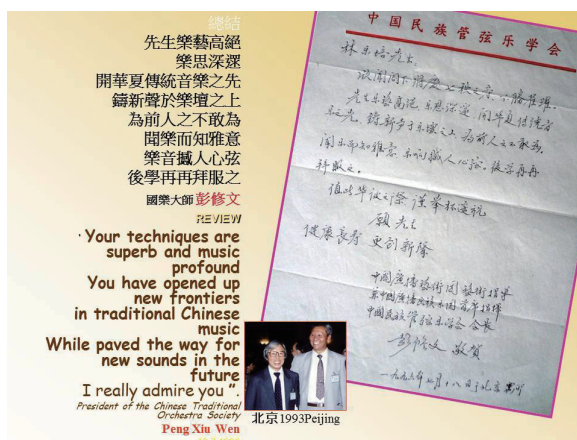 總結
先生樂藝高絕
樂思深邃
開華夏傳統音樂之先
鑄新聲於樂壇之上
為前人之不敢為
聞樂而知雅意
樂音撼人心弦
後學再再拜服之
國樂大師 彭修文
REVIEW
· Your techniques are
superb and music
profound
You have opened up
new frontiers
in traditional Chinese
music
While paved the way for
new sounds in the
future
I really admire you ”.
President of the Chinese Traditional
Orchestra Society
Peng Xiu Wen
中国民族管弦乐学会
林乐培先生
先生乐艺高绝 乐思深邃 开华夏传统音
乐之先 铸新声于乐坛之上 为前人之不敢为
闻乐而知雅意 乐音撼人心弦 后学再再
拜服之
值此华诞之际 谨举杯遥祝
愿先生
健康长寿 更创新隆
中国广播艺术团艺术指导
中国民族管弦乐学会会长
彭修文 敬贺
北京1993Peijing